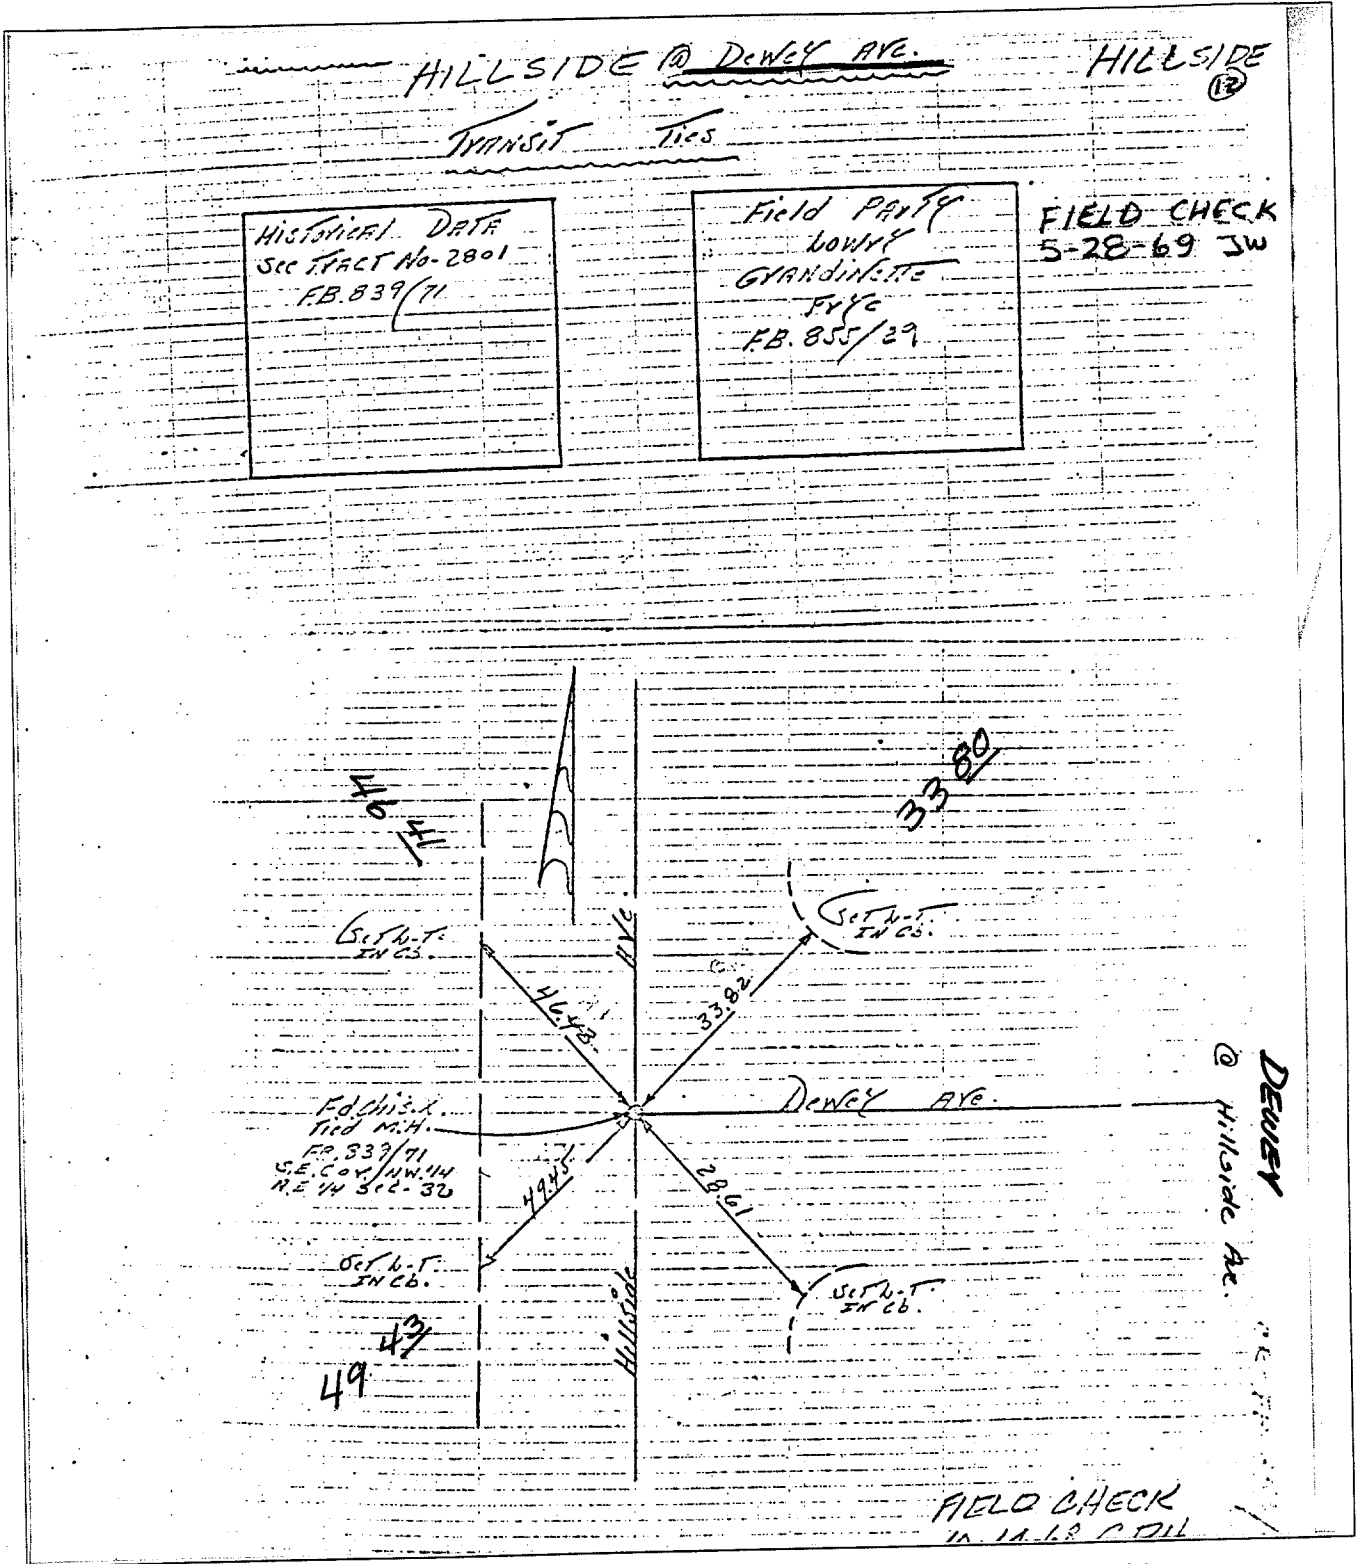 HILLSIDE @ Dewey AVE.
HILLSIDE
12
TRANSIT Ties
Historical DATA
See TRACT No-2801
F.B. 839/71
Field PArty
Lowry
GRANdiNette
Frye
F.B. 855/29
FIELD CHECK
5-28-69 JW
46 41
33 80
Set L-T.
IN Cb.
Set L-T.
IN Cb.
AVe.
46.43
33.82
Dewey Ave.
Fd. Chis. X.
Tied M.H.
FB. 839/71
S.E. Cor. NW. 1/4
N.E 1/4 Sec. 32
49.45
28.61
Set L-T.
IN Cb.
Set L-T.
IN Cb.
Hillside
49 43
DEWEY
@ Hillside Ave.
FIELD CHECK